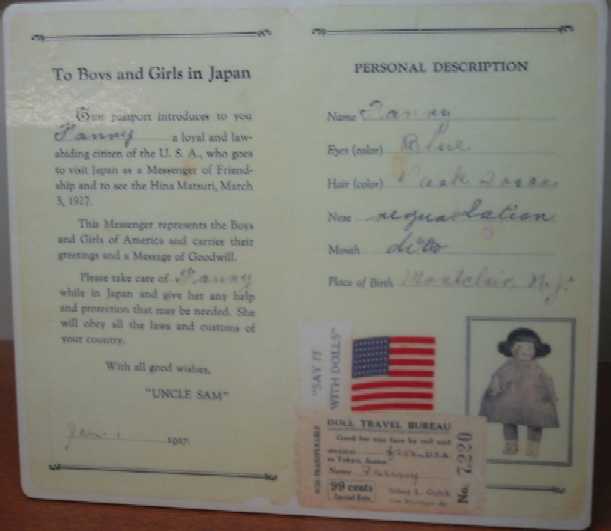 To Boys and Girls in Japan
This passport introduces to you
Fanny a loyal and law-
abiding citizen of the U. S. A., who goes
to visit Japan as a Messenger of Friend-
ship and to see the Hina Matsuri, March
3, 1927.
This Messenger represents the Boys
and Girls of America and carries their
greetings and a Message of Goodwill.
Please take care of Fanny
while in Japan and give her any help
and protection that may be needed. She
will obey all the laws and customs of
your country.
With all good wishes,
"UNCLE SAM"
Jan. 1 1927.
PERSONAL DESCRIPTION
Name Fanny
Eyes (color) Blue
Hair (color) Dark
Nose regulation
Mouth ditto
Place of Birth Montclair N. J.
"SAY IT
WITH DOLLS"
NON-TRANSFERABLE
DOLL TRAVEL BUREAU
Good for one fare by rail and
U.S.A.
to Tokyo, Japan
Name Fanny
99 cents
Special Rate
Sidney L. Gulick
No. 7,220